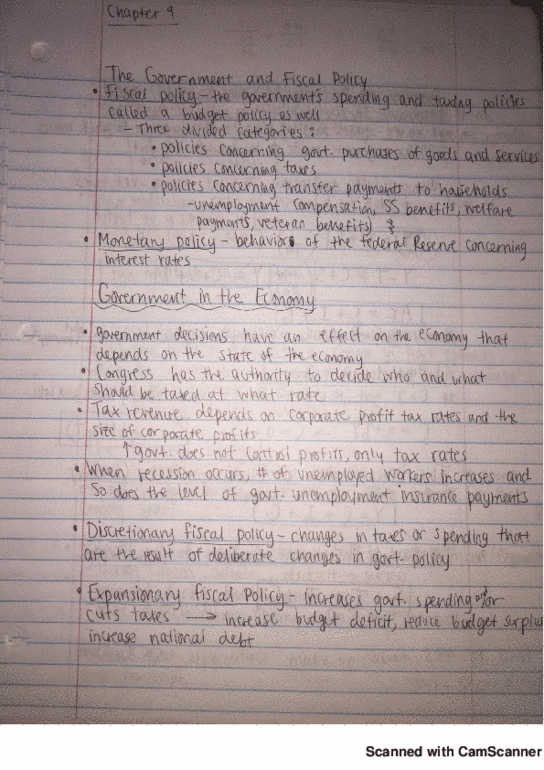 Chapter 9
The Government and Fiscal Policy
• fiscal policy - the government's spending and taxing policies
called a budget policy as well
- Three divided categories:
• policies concerning govt. purchases of goods and services
• policies concerning taxes
• policies concerning transfer payments to households
-unemployment compensation, SS benefits, welfare
payments, veteran benefits)
• Monetary policy - behaviors of the federal Reserve concerning
interest rates
Government in the Economy
• government decisions have an effect on the economy that
depends on the state of the economy
• Congress has the authority to decide who and what
should be taxed at what rate
• Tax revenue depends on corporate profit tax rates and the
size of corporate profits
↑ govt. does not control profits, only tax rates
• When recession occurs, # of unemployed workers increases and
so does the level of govt. unemployment insurance payments
• Discretionary fiscal policy - changes in taxes or spending that
are the result of deliberate changes in govt. policy
• Expansionary fiscal Policy - increases govt. spending and/or
cuts taxes → increase budget deficit, reduce budget surplus
increase national debt
Scanned with CamScanner